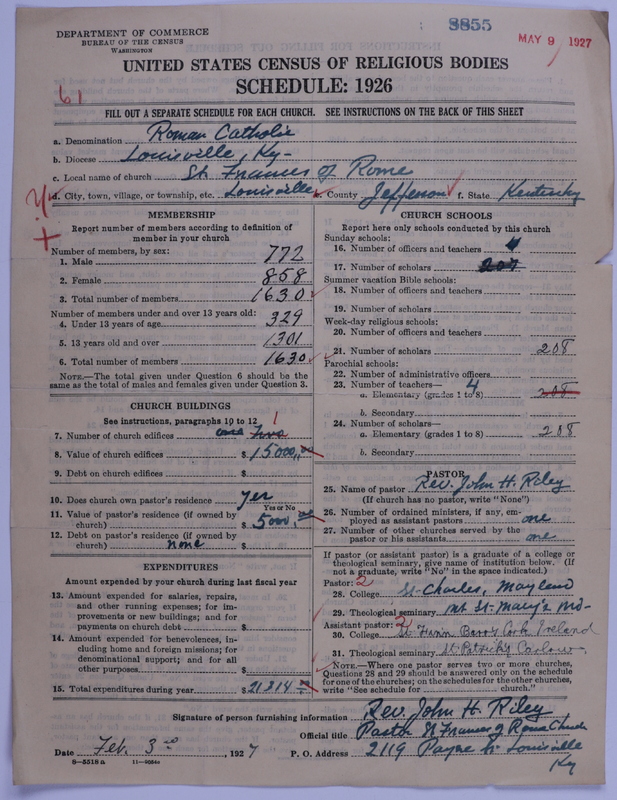 8855
MAY 9 1927
DEPARTMENT OF COMMERCE
BUREAU OF THE CENSUS
WASHINGTON
UNITED STATES CENSUS OF RELIGIOUS BODIES
SCHEDULE: 1926
61
FILL OUT A SEPARATE SCHEDULE FOR EACH CHURCH. SEE INSTRUCTIONS ON THE BACK OF THIS SHEET
a. Denomination Roman Catholic
b. Diocese Louisville, Ky-
c. Local name of church St. Frances of Rome
d. City, town, village, or township, etc. Louisville e. County Jefferson f. State Kentucky
MEMBERSHIP
Report number of members according to definition of
member in your church
Number of members, by sex:
1. Male 772
2. Female 858
3. Total number of members 1630
Number of members under and over 13 years old:
4. Under 13 years of age 329
5. 13 years old and over 1301
6. Total number of members 1630
NOTE.—The total given under Question 6 should be
same as the total of males and females given under Question 3.
CHURCH BUILDINGS
See instructions, paragraphs 10 to 12
7. Number of church edifices one Two 1
8. Value of church edifices $ 15000,00
9. Debt on church edifices $
10. Does church own pastor's residence yes
Yes or No
11. Value of pastor's residence (if owned by
church) $ 5000,00
12. Debt on pastor's residence (if owned by
church) none $
EXPENDITURES
Amount expended by your church during last fiscal year
13. Amount expended for salaries, repairs,
and other running expenses; for im-
provements or new buildings; and for
payments on church debt $
14. Amount expended for benevolences, in-
cluding home and foreign missions; for
denominational support; and for all
other purposes $
15. Total expenditures during year $ 21314
CHURCH SCHOOLS
Report here only schools conducted by this church
Sunday schools:
16. Number of officers and teachers 4
17. Number of scholars 208
Summer vacation Bible schools:
18. Number of officers and teachers
19. Number of scholars
Week-day religious schools:
20. Number of officers and teachers
21. Number of scholars 208
Parochial schools:
22. Number of administrative officers
23. Number of teachers—
a. Elementary (grades 1 to 8) 4 208
b. Secondary
24. Number of scholars—
a. Elementary (grades 1 to 8) 208
b. Secondary
PASTOR
25. Name of pastor Rev. John H. Riley
(If church has no pastor, write "None")
26. Number of ordained ministers, if any, em-
ployed as assistant pastors one
27. Number of other churches served by the
pastor or his assistants one
If pastor (or assistant pastor) is a graduate of a college or
theological seminary, give name of institution below. (If
not a graduate, write "No" in the space indicated.)
Pastor: 2
28. College St. Charles, Maryland
29. Theological seminary Mt St-Mary's Md-
Assistant pastor: 2
30. College St. Finn Barrs Cork Ireland
31. Theological seminary St. Patricks Carlow
NOTE.—Where one pastor serves two or more churches,
Questions 28 and 29 should be answered only on the schedule
for one of the churches; on the schedules for the other churches,
write "See schedule for church."
Signature of person furnishing information Rev. John H. Riley
Official title Pastor St Frances of Rome Church
Date Feb. 3rd, 1927 P. O. Address 2119 Payne St Louisville
Ky
8—5518 a 11—9084